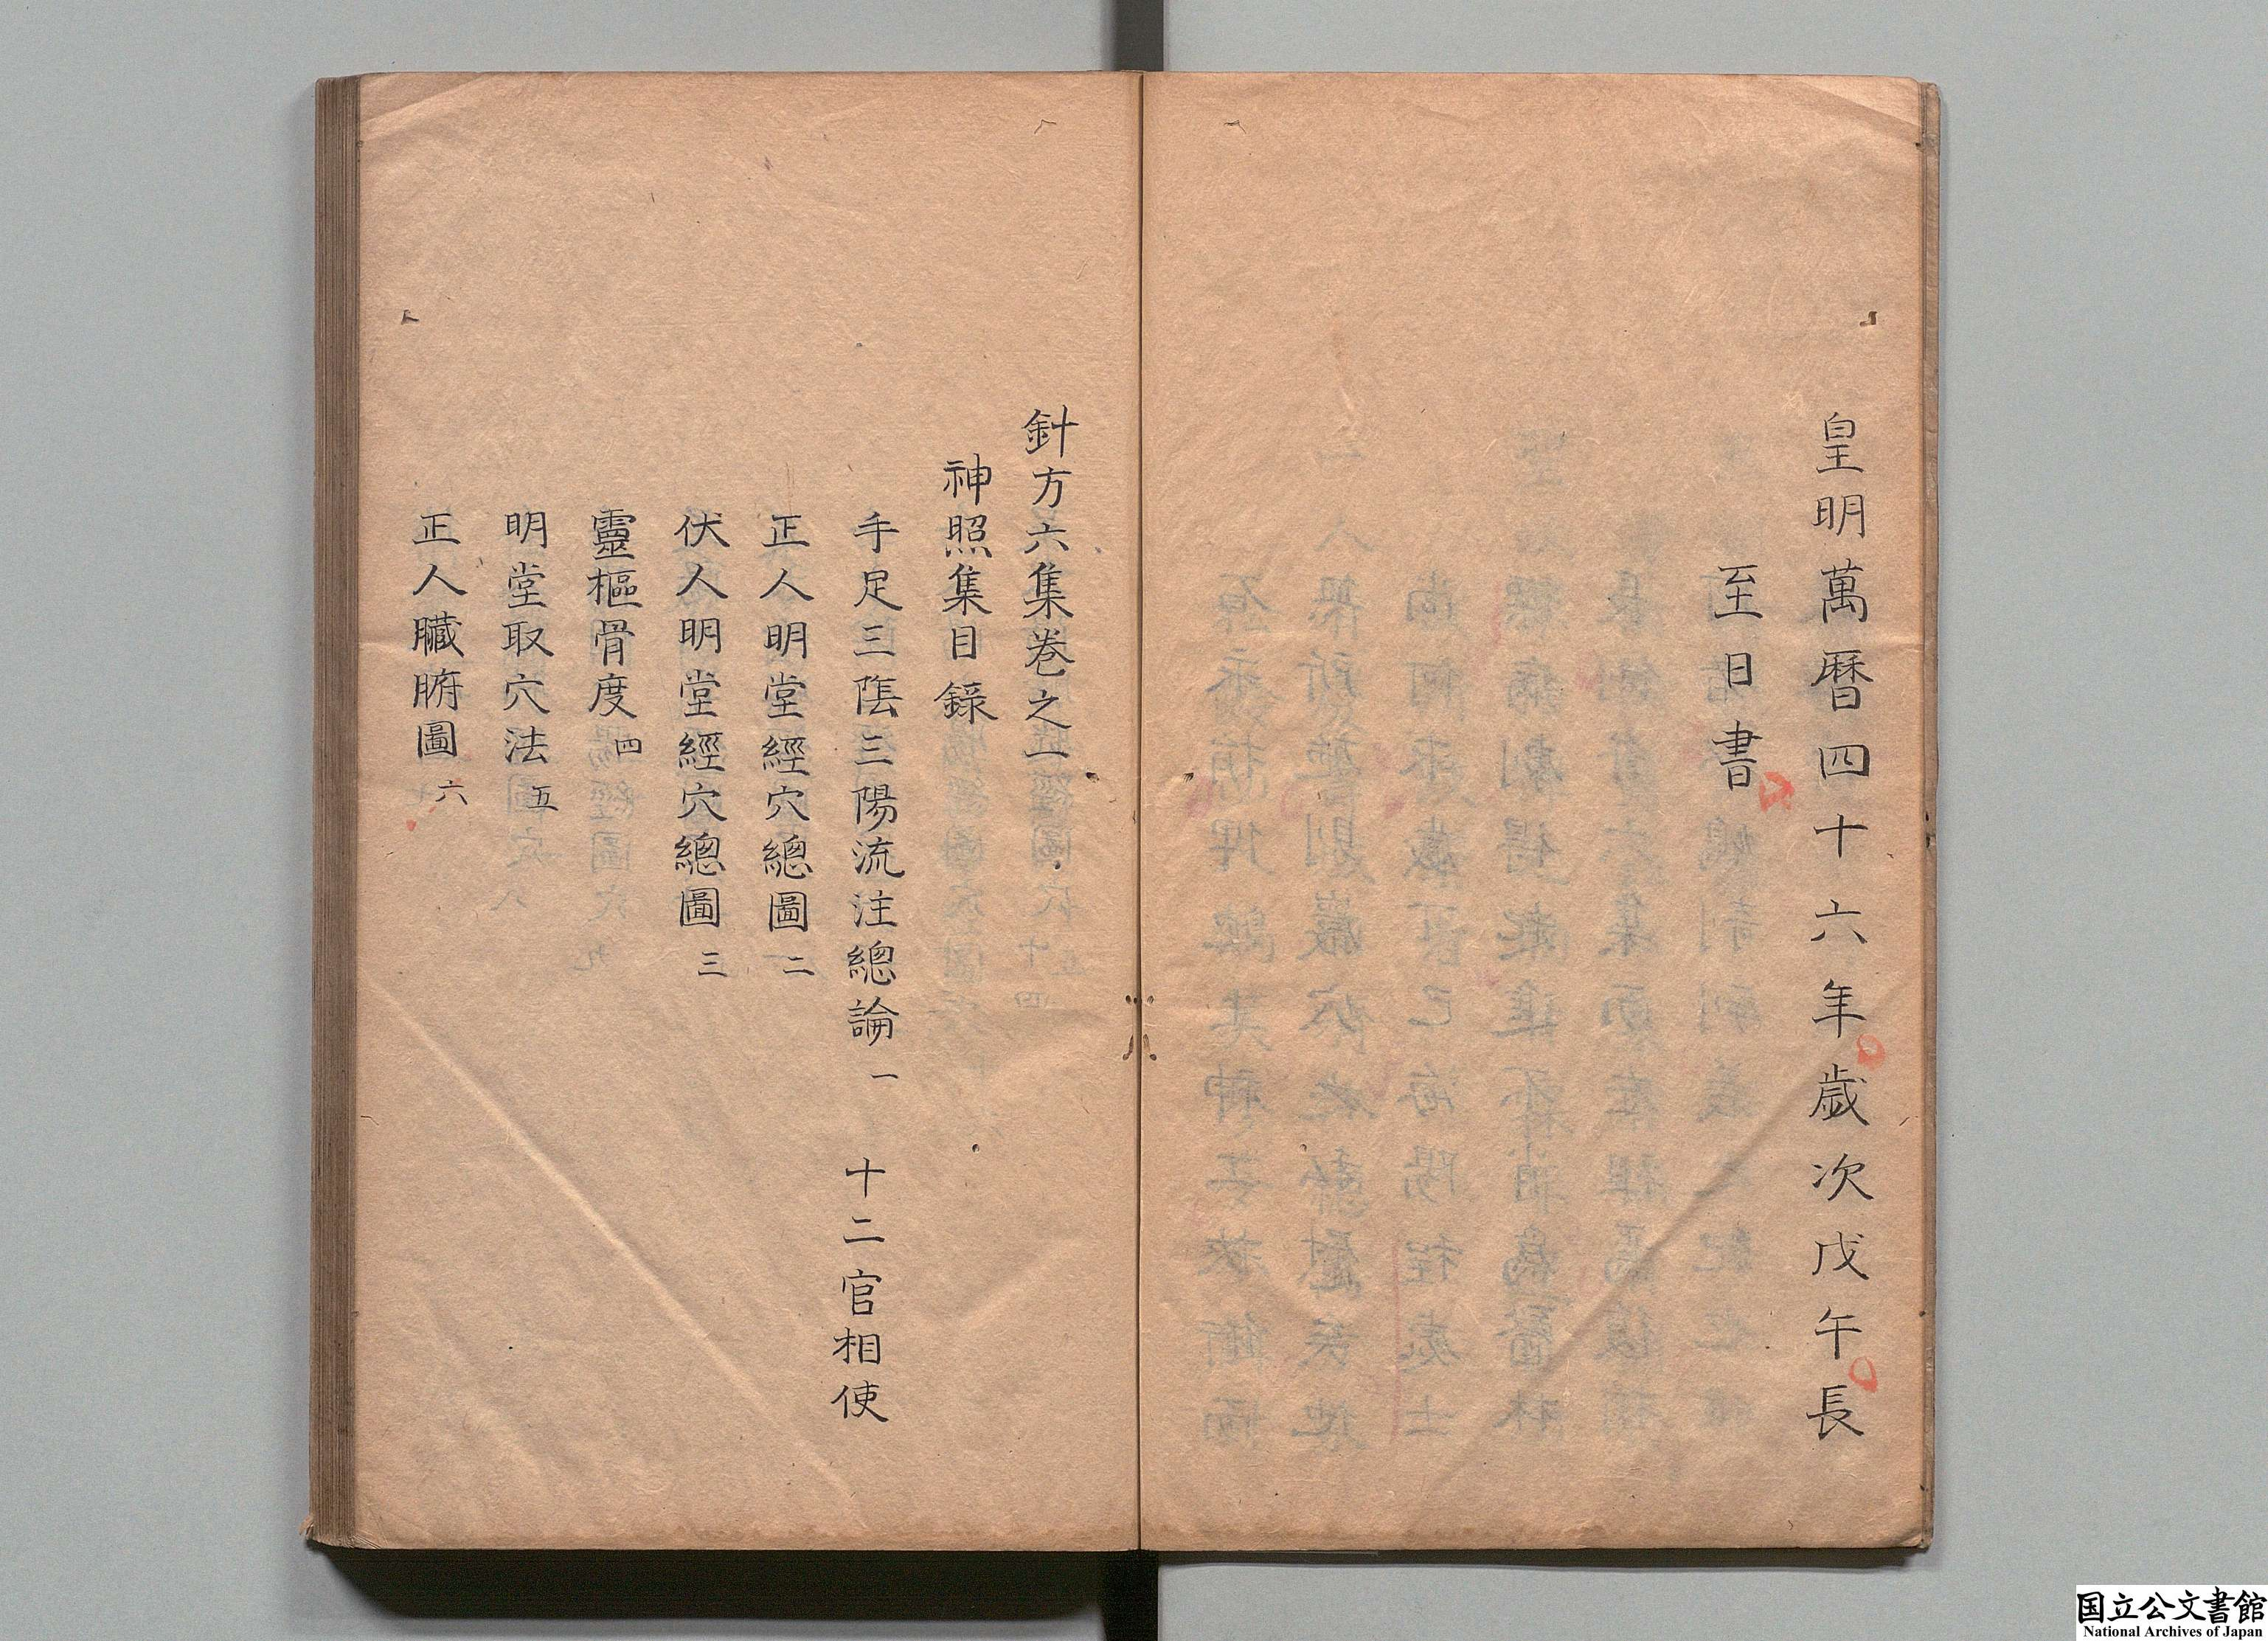 皇明萬曆四十六年歲次戊午長
至日書
針方六集卷之一
神照集目錄
手足三陰三陽流注總論一 十二官相使
正人明堂經穴總圖二
伏人明堂經穴總圖三
靈樞骨度四
明堂取穴法五
正人臟腑圖六
国立公文書館
National Archives of Japan